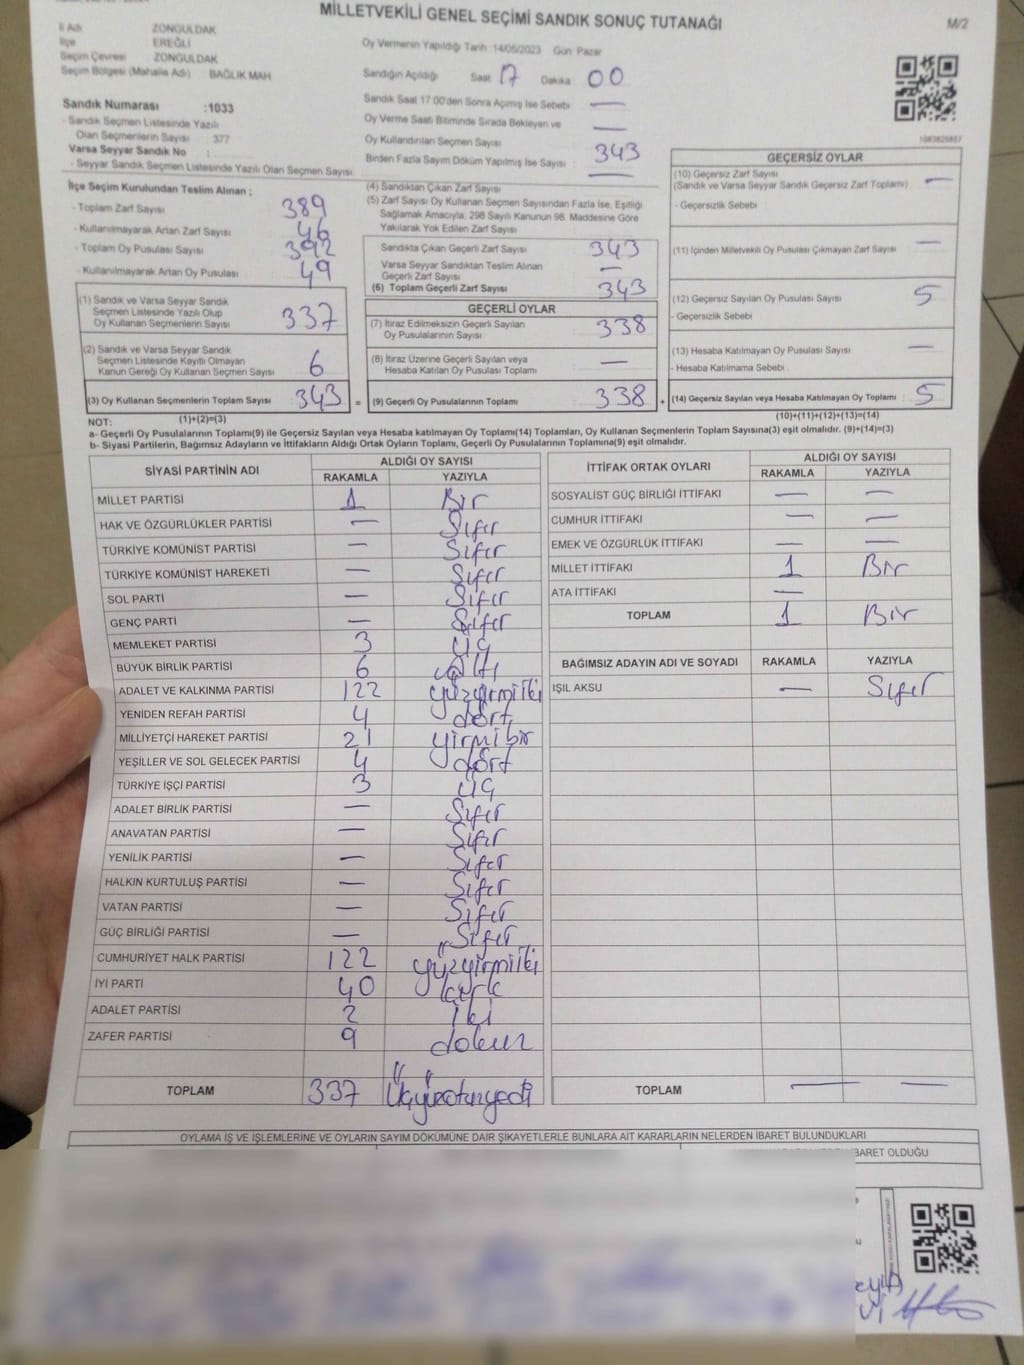 MİLLETVEKİLİ GENEL SEÇİMİ SANDIK SONUÇ TUTANAĞI
M/2
İli Adı ZONGULDAK
İlçe EREĞLİ
Seçim Çevresi ZONGULDAK
Seçim Bölgesi (Mahalle Adı) BAĞLIK MAH
Sandık Numarası :1033
- Sandık Seçmen Listesinde Yazılı
Olan Seçmenlerin Sayısı : 377
Varsa Seyyar Sandık No :
- Seyyar Sandık Seçmen Listesinde Yazılı Olan Seçmen Sayısı
Oy Vermenin Yapıldığı Tarih :14/05/2023 Gün Pazar
Sandığın Açıldığı Saat 17 Dakika 00
Sandık Saat 17:00'den Sonra Açımış İse Sebebi —
Oy Verme Saati Bitiminde Sırada Bekleyen ve —
Oy Kullandırılan Seçmen Sayısı : 343
Birden Fazla Sayım Döküm Yapılmış İse Sayısı : —
İlçe Seçim Kurulundan Teslim Alınan ;
- Toplam Zarf Sayısı 389
- Kullanılmayarak Artan Zarf Sayısı 46
- Toplam Oy Pusulası 392
- Kullanılmayarak Artan Oy Pusulası 49
(1) Sandık ve Varsa Seyyar Sandık
Seçmen Listesinde Yazılı Olup
Oy Kullanan Seçmenlerin Sayısı 337
(2) Sandık ve Varsa Seyyar Sandık
Seçmen Listesinde Kayıtlı Olmayan
Kanun Gereği Oy Kullanan Seçmen Sayısı 6
(3) Oy Kullanan Seçmenlerin Toplam Sayısı 343 =
(1)+(2)=(3)
(4) Sandıktan Çıkan Zarf Sayısı
(5) Zarf Sayısı Oy Kullanan Seçmen Sayısından Fazla İse, Eşitliği
Sağlamak Amacıyla, 298 Sayılı Kanunun 98. Maddesine Göre
Yakılarak Yok Edilen Zarf Sayısı
Sandıkta Çıkan Geçerli Zarf Sayısı 343
Varsa Seyyar Sandıktan Teslim Alınan —
Geçerli Zarf Sayısı
(6) Toplam Geçerli Zarf Sayısı 343
GEÇERLİ OYLAR
(7) İtiraz Edilmeksizin Geçerli Sayılan 338
Oy Pusulalarının Sayısı
(8) İtiraz Üzerine Geçerli Sayılan veya —
Hesaba Katılan Oy Pusulası Toplamı
(9) Geçerli Oy Pusulalarının Toplamı 338 +
GEÇERSİZ OYLAR
(10) Geçersiz Zarf Sayısı —
(Sandık ve Varsa Seyyar Sandık Geçersiz Zarf Toplamı)
- Geçersizlik Sebebi :
(11) İçinden Milletvekili Oy Pusulası Çıkmayan Zarf Sayısı —
(12) Geçersiz Sayılan Oy Pusulası Sayısı 5
- Geçersizlik Sebebi :
(13) Hesaba Katılmayan Oy Pusulası Sayısı —
- Hesaba Katılmama Sebebi :
(14) Geçersiz Sayılan veya Hesaba Katılmayan Oy Toplamı 5
(10)+(11)+(12)+(13)=(14)
NOT:
a- Geçerli Oy Pusulalarının Toplamı(9) ile Geçersiz Sayılan veya Hesaba katılmayan Oy Toplamı(14) Toplamları, Oy Kullanan Seçmenlerin Toplam Sayısına(3) eşit olmalıdır. (9)+(14)=(3)
b- Siyasi Partilerin, Bağımsız Adayların ve İttifakların Aldığı Ortak Oyların Toplamı, Geçerli Oy Pusulalarının Toplamına(9) eşit olmalıdır.
SİYASİ PARTİNİN ADI ALDIĞI OY SAYISI
RAKAMLA YAZIYLA
MİLLET PARTİSİ 1 Bir
HAK VE ÖZGÜRLÜKLER PARTİSİ — Sıfır
TÜRKİYE KOMÜNİST PARTİSİ — Sıfır
TÜRKİYE KOMÜNİST HAREKETİ — Sıfır
SOL PARTİ — Sıfır
GENÇ PARTİ — Sıfır
MEMLEKET PARTİSİ 3 üç
BÜYÜK BİRLİK PARTİSİ 6 altı
ADALET VE KALKINMA PARTİSİ 122 yüzyirmiiki
YENİDEN REFAH PARTİSİ 4 dört
MİLLİYETÇİ HAREKET PARTİSİ 21 yirmibir
YEŞİLLER VE SOL GELECEK PARTİSİ 4 dört
TÜRKİYE İŞÇİ PARTİSİ 3 üç
ADALET BİRLİK PARTİSİ — Sıfır
ANAVATAN PARTİSİ — Sıfır
YENİLİK PARTİSİ — Sıfır
HALKIN KURTULUŞ PARTİSİ — Sıfır
VATAN PARTİSİ — Sıfır
GÜÇ BİRLİĞİ PARTİSİ — Sıfır
CUMHURİYET HALK PARTİSİ 122 yüzyirmiiki
İYİ PARTİ 40 kırk
ADALET PARTİSİ 2 iki
ZAFER PARTİSİ 9 dokuz
TOPLAM 337 Üçyüzotuzyedi
İTTİFAK ORTAK OYLARI ALDIĞI OY SAYISI
RAKAMLA YAZIYLA
SOSYALİST GÜÇ BİRLİĞİ İTTİFAKI — —
CUMHUR İTTİFAKI — —
EMEK VE ÖZGÜRLÜK İTTİFAKI — —
MİLLET İTTİFAKI 1 Bir
ATA İTTİFAKI —
TOPLAM 1 Bir
BAĞIMSIZ ADAYIN ADI VE SOYADI RAKAMLA YAZIYLA
IŞIL AKSU — Sıfır
TOPLAM — —
OYLAMA İŞ VE İŞLEMLERİNE VE OYLARIN SAYIM DÖKÜMÜNE DAİR ŞİKAYETLERLE BUNLARA AİT KARARLARIN NELERDEN İBARET BULUNDUKLARI
BARET OLDUĞU